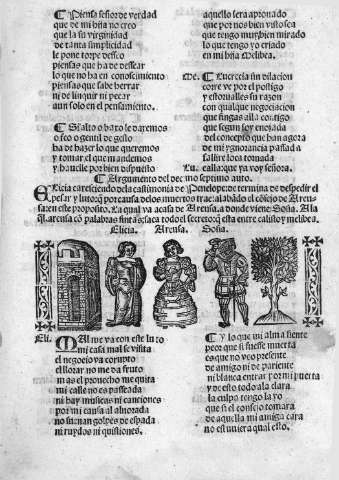 Piensa señor de verdad
que de mi hija no creo
que la su virginidad
de tanta simplicidad
le pone torpe desseo
piensas que ha de dessear
lo que no ha en conoscimiento
piensas que sabe herrar
ni de linquir ni pecar
aun solo en el pensamiento.
Si alto o baxo le daremos
o feo o gentil de gesto
ha de hazer lo que queremos
y tomar el que mandemos
y hauelle por bien dispuesto
aquello sera aprouado
que por nos bien visto sea
que tengo muy bien mirado
lo que tengo yo criado
en mi hija Melibea.
Me. Lucrecia sin dilacion
corre ve por el postigo
y estorualles su razon
con qualque negociacion
que fingas alla contigo
que segun soy enojada
del concepto que han agora
de mi ygnorancia passada
saldre loca tornada
Lu. calla que ya voy señora.
Argumento del dec no septimo auto.
Elicia caresciendo de la castimonia de Penelope: determina de despedir el
pesar y luto q̃ por causa de los muertos trae: alabãdo el cõsejo de Areu-
sa en este proposito. La qual va a casa de Areusa. a donde viene Sosia. A la
q̃l areusa cõ palabras fictas saca todo el secreto q̃ esta entre calisto y melibea.
Elicia. Areusa. Sosia.
Eli. MAl me va con este luto
mi casa mal se visita
el negocio va corrupto
el llorar no me da fruto
mas el prouecho me quita
mi calle no es passeada
ni hay musicas ni canciones
por mi causa al aluorada
no suenan golpes de espada
ni ruydos ni quistiones.
Y lo que mi alma siente
peor que si fuesse muerta
es que no veo presente
de amigo ni de pariente
ni blanca entrar por mi puerta
y de esto toda la clara
la culpa tengo la yo
que si el consejo tomara
de aquella mi amiga cara
no estuuiera qual esto.